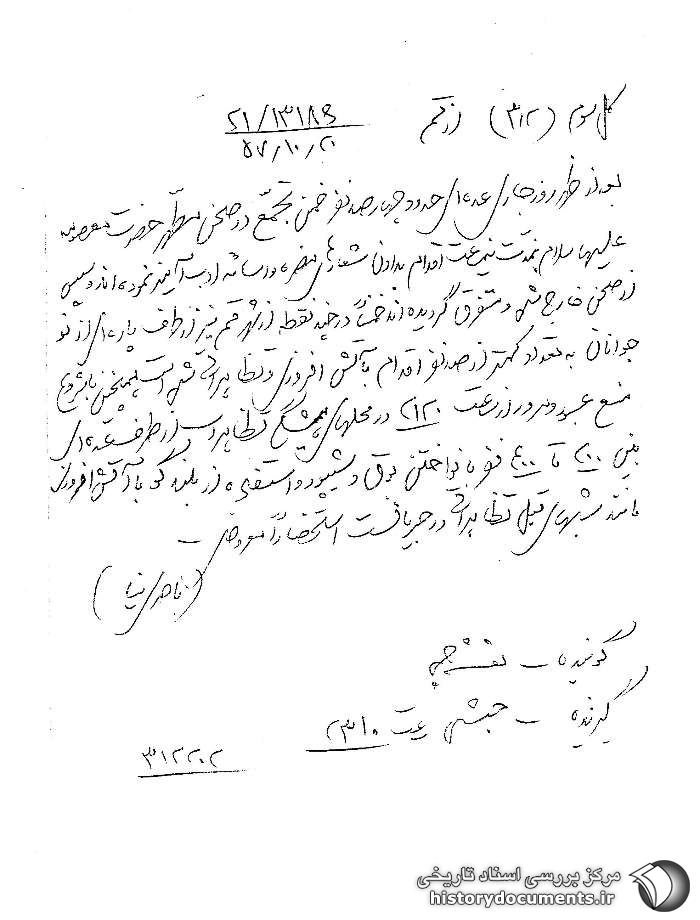 کل سوم (۳۱۲) از قم ۲۱/۱۳۱۸۶
۵۷/۱۰/۲۰
بعدازظهر روز جاری عده‌ای حدود چهارصد نفر ضمن تجمع در صحن مطهر حضرت معصومه
علیها سلام بمدت نیمساعت اقدام بدادن شعارهای مضره و اسائه ادب آمیز نموده‌اند و سپس
از صحن خارج شده و متفرق گردیده‌اند ضمناً در چند نقطه از شهر قم نیز از طرف پاره‌ای از نو
جوانان به تعداد کمتر از صد نفر اقدام بآتش افروزی و تظاهراتی شده است همچنین با شروع
منع عبور و مرور از ساعت ۲۱۲۰ در محلهای همیشگی تظاهرات از طرف عده‌ای
بین ۲۰۰ تا ۴۰۰ نفر با نواختن بوق و شیپور و استفاده از بلندگو با آتش افروزی
مانند شبهای قبل تظاهراتی در جریانست استحضاراً معروض
(ناصری نیا)
گوینده -
گیرنده - حبشی ساعت ۲۳۱۰
۳۱۲۲۰۲
مرکز بررسی اسناد تاریخی
historydocuments.ir